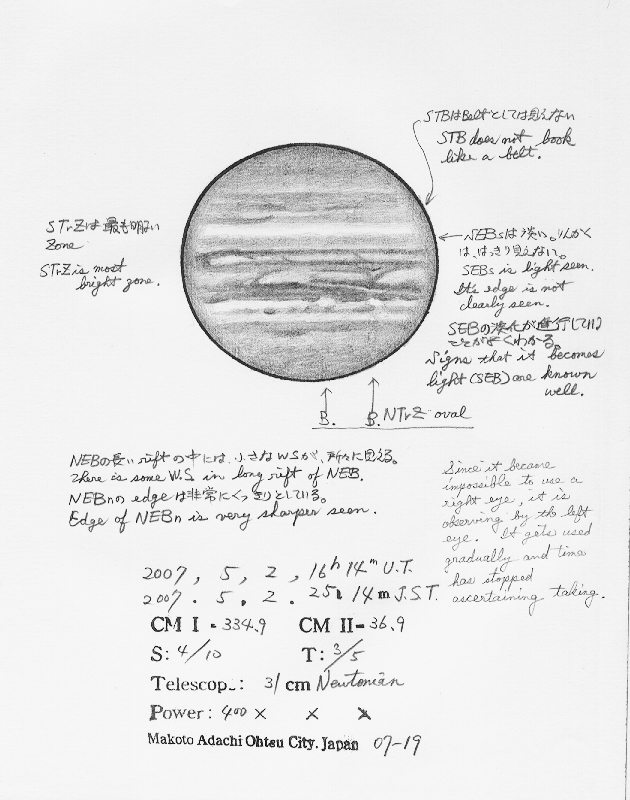 STBはBeltとしては見えない
STB does not book
like a belt.
STrZは最も明るい
Zone
STrZ is most
bright zone.
NEBsは淡い。りんかく
は、はっきり見えない。
SEBs is light seen.
It's edge is not
clearly seen.
SEBの淡化が進行している
ことがよくわかる。
Signs that it becomes
light (SEB) are known
well.
B. B. NTrZ oval
NEBの長いriftの中には、小さなWSが、所々に見える。
There is some W.S in long rift of NEB.
NEBnのedgeは非常にくっきりとしている。
Edge of NEBn is very sharper seen.
Since it became
impossible to use a
right eye, it is
observing by the left
eye. It gets used
gradually and time
has stopped
ascertaining taking.
2007, 5, 2, 16h 14m U.T.
2007. 5. 2. 25h 14m J.S.T.
CM I - 334.9 CM II - 36.9
S: 4/10 T: 3/5
Telescop_: 31 cm Newtonian
Power: 400 × × ×
Makoto Adachi Ohtsu City. Japan 07-19